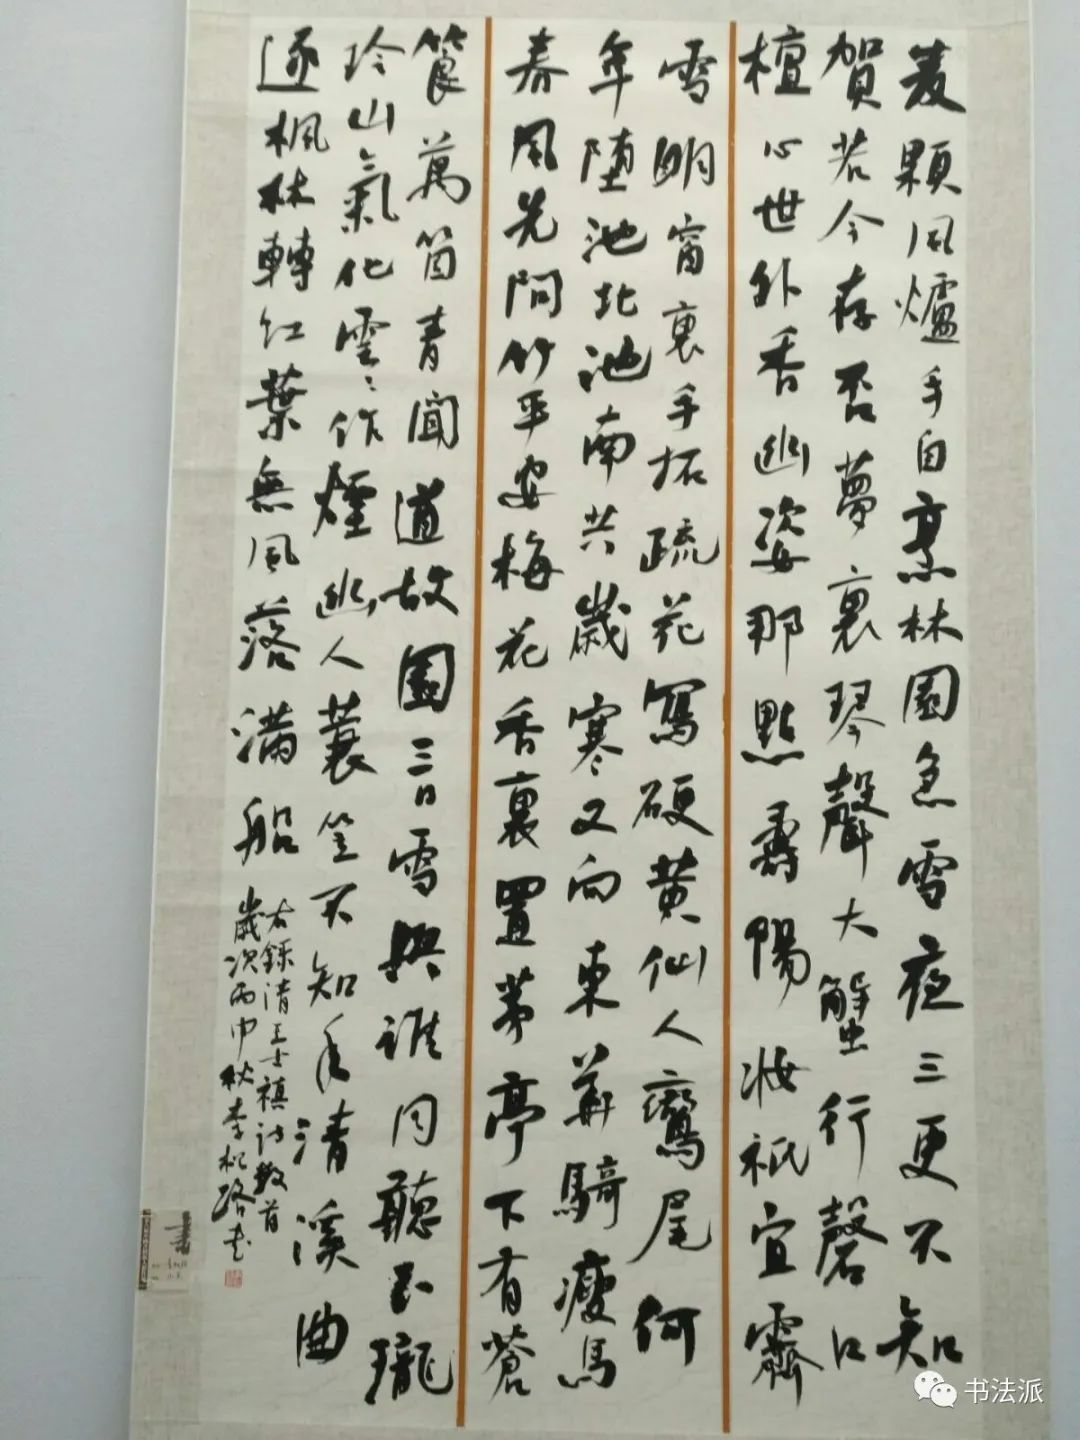 菱顆風爐手自烹林園急雪夜三更不知
賀若今存否夢裏琴聲大蟹行磬口
檀心世外香幽姿那點壽陽妝祇宜霽
雪明窗裏手拓疏花寫硬黄仙人鸞尾何
年墮池北池南共歲寒又向東華騎瘦馬
春風先問竹平安梅花香裏置茅亭下有蒼
筤萬箇青聞道故園三日雪與誰同聽玉瓏
玲山氣化雲雲作煙幽人蓑笠不知年清溪曲
逐楓林轉紅葉無風落滿船
右錄清王士禛詩數首
歲次丙申秋李松路書
書法派